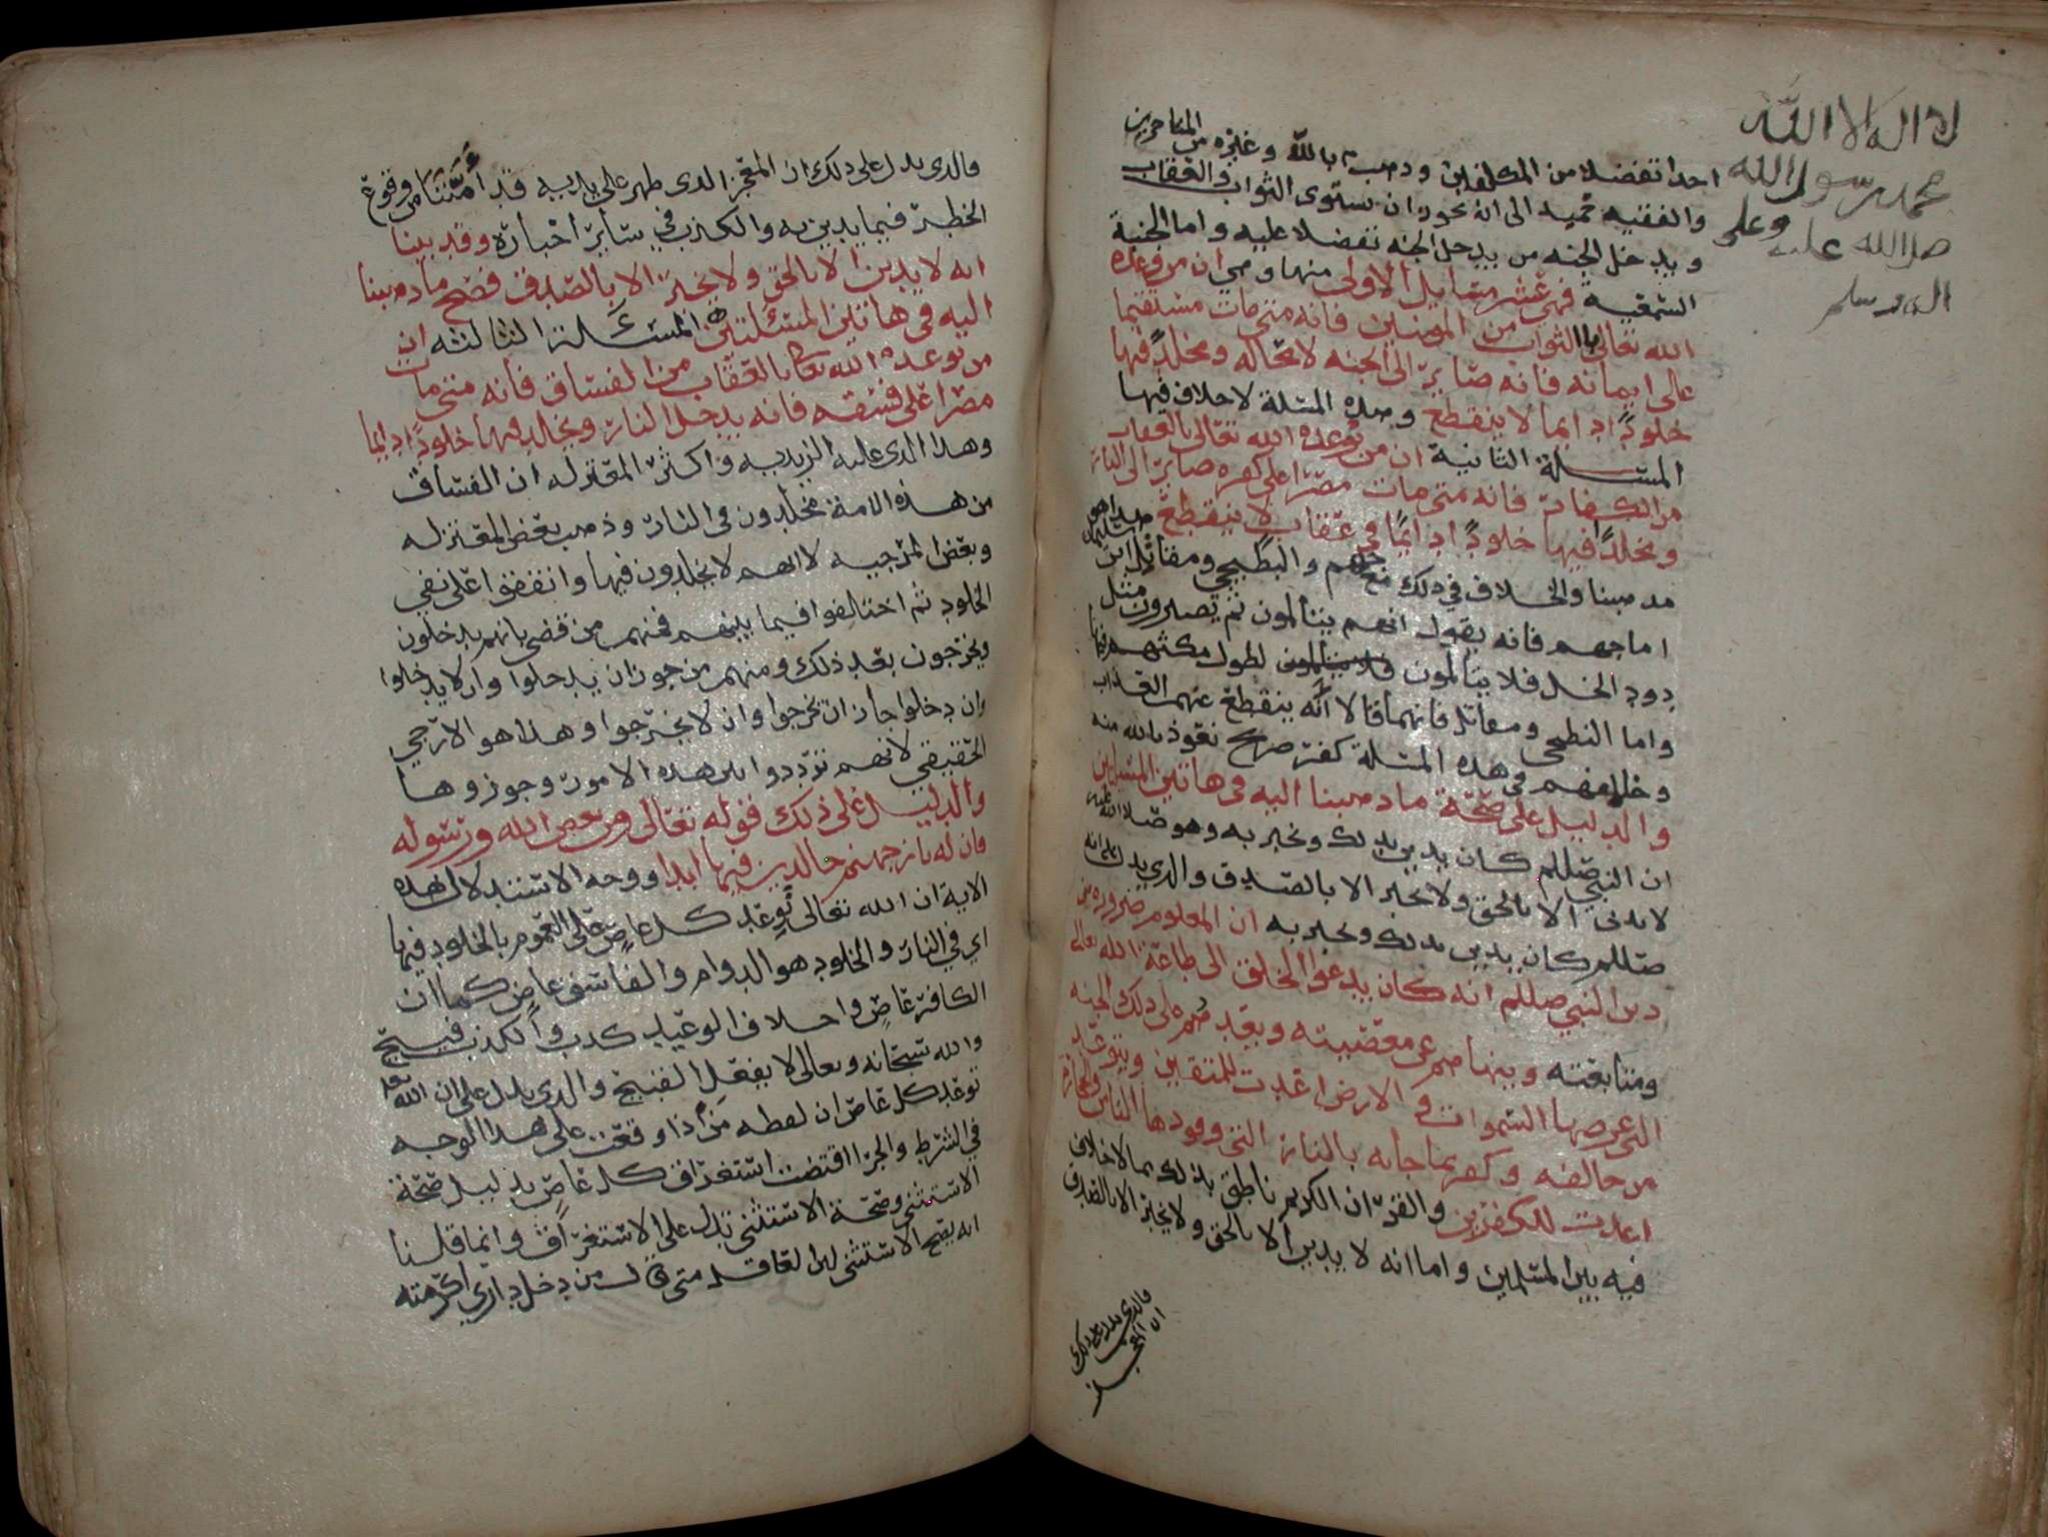 لا اله الا الله
محمد رسول الله
صلى الله عليه وعلى
اله وسلم
احدا تفضلا من المكلفين وذهب م بالله وغيره من المتاخرين
والفقيه حميد الى انه يجوز ان يستوى الثواب والعقاب
ويدخل الجنه من يدخل الجنه تفضلا عليه واما الجنبة
السمعيه فهي عشر مسايل الاولى منها وهي ان من وعده
الله تعالى بالثواب من المومنين فانه متى مات مستقيما
على ايمانه فانه صاير الى الجنه لا محاله ومخلدا فيها
خلودا دايما لا ينقطع وهذه المسلة لا خلاف فيها
المسلة الثانية ان من توعده الله تعالى بالعقاب
من الكفار فانه متى مات مصرا على كفره صاير الى النار
ومخلدا فيها خلودا دايما في عقاب لا ينقطع هذا هو
مذهبنا والخلاف في ذلك مع جهم والبطيحي ومقاتل ابن سليمان
اما جهم فانه يقول انهم يتالمون ثم يصيرون مثل
دود الخل فلا يتالمون لطول مكثهم فيها
واما البطيحي ومقاتل فانهما قالا انه ينقطع عنهم العذاب
وخلافهم في هذه المسلة كفر صريح نعوذ بالله منه
والدليل على صحة ما ذهبنا اليه في هاتين المسلتين
ان النبي صللم كان يدين بذلك ويخبر به وهو صلا الله عليه
لا يدين الا بالحق ولا يخبر الا بالصدق والذي يدل على انه
صللم كان يدين بذلك ويخبر به ان المعلوم ضرورة من
دين النبي صللم انه كان يدعوا الخلق الى طاعة الله تعالى
ومتابعته وينهاهم عن معصيته ويعدهم على ذلك الجنه
التي عرضها السموات والارض اعدت للمتقين ويتوعد
من خالفه وكفر بما جا به بالنار التي وقودها الناس والحجارة
اعدت للكفرين والقران الكريم ناطق بذلك مما لا خلاف
فيه بين المسلمين واما انه لا يدين الا بالحق ولا يخبر الا بالصدق
فالذي يدل على ذلك
ان المعجز
فالذى يدل على ذلك ان المعجز الذى ظهر على يديه قد أمننا من وقوع
الخطر فيما يدين به والكذب في ساير اخباره وقد بينا
انه لا يدين الا بالحق ولا يخبر الا بالصدق فصح ما ذهبنا
اليه في هاتين المسئلتين المسئلة الثالثه ان
من توعده الله تعا بالعقاب من الفساق فانه متى مات
مصرا على فسقه فانه يدخل النار ويخلد فيها خلودا دايما
وهذا الذي عليه الزيديه واكثر المعتزله ان الفساق
من هذه الامة مخلدون في النار وذهب بعض المعتزله
وبعض المرجيه لا انهم لا يخلدون فيها واتفقوا على نفي
الخلود ثم اختلفوا فيما بينهم فمنهم من قضى بانهم يدخلون
ويخرجون بعد ذلك ومنهم من جوز ان يدخلوا وان لا يدخلوا
وان دخلوا جاز ان يخرجوا وان لا يخرجوا وهذا هو الارجى
الحقيقي لانهم ترددوا بين هذه الامور وجوزوها
والدليل على ذلك قوله تعالى ومن يعص الله ورسوله
فان له نار جهنم خالدين فيها ابدا ووجه الاستدلال بهذه
الاية ان الله تعالى توعد كل عاص على العموم بالخلود فيها
اي في النار والخلود هو الدوام والفاسق عاص كما ان
الكافر عاص واخلاف الوعيد كذب والكذب قبيح
والله سبحانه وتعالى لا يفعل القبيح والذي يدل على ان الله تعا
توعد كل عاص ان لفظه من اذا وقعت على هذا الوجه
في الشرط والجزا اقتضت استغراق كل عاص بدليل صحة
الاستثنى وصحة الاستثنى تدل على الاستغراق وانما قلنا
انه يصح الاستثنى لان العاقل متى قال من دخل داري اكرمته